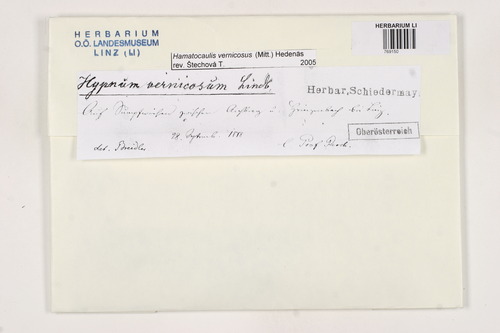 HERBARIUM
O.Ö. LANDESMUSEUM
LINZ (LI)
HERBARIUM LI
769150
Hamatocaulis vernicosus (Mitt.) Hedenäs
rev. Štechová T. 2005
Hypnum vernicosum Lindb
Herbar, Schiedermayr
Auf Sumpfwiesen zwischen u. bei Linz
28. Septemb.
Oberösterreich
det. Breidler Prof.